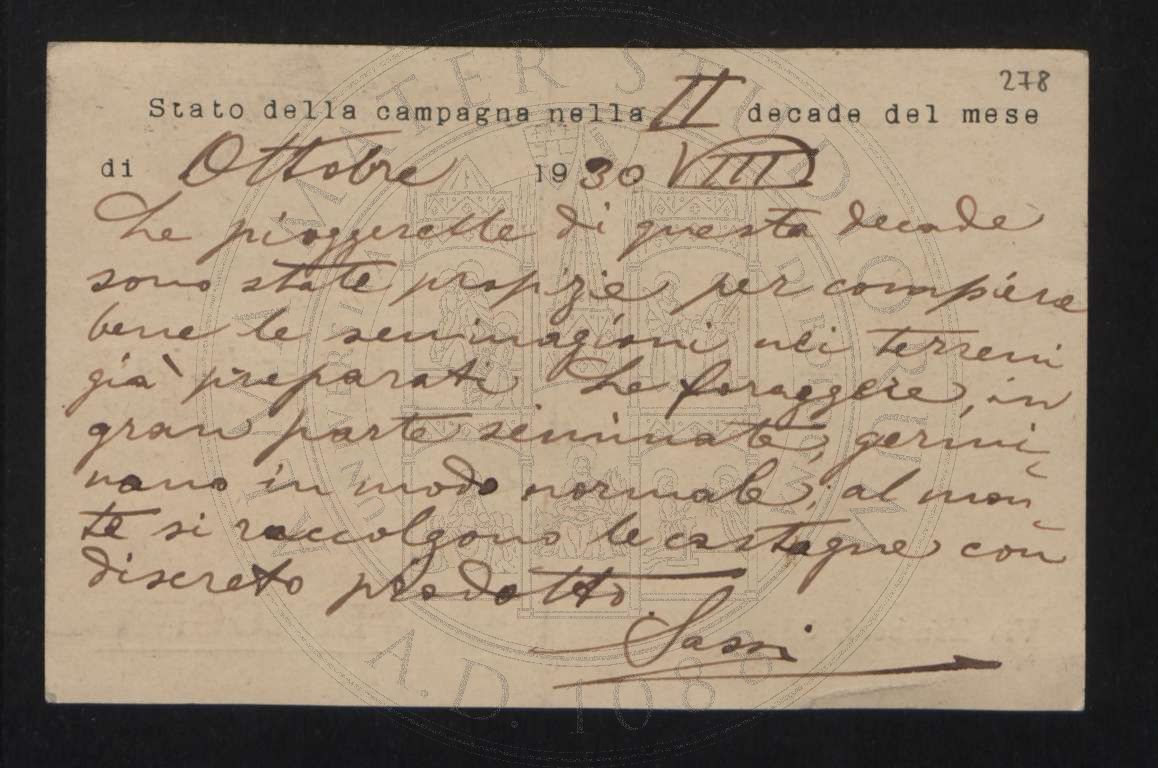 278
Stato della campagna nella II decade del mese
di Ottobre 1930 VIII
Le pioggerelle di questa decade
sono state propizie per compiere
bene le seminagioni nei terreni
già preparati. Le foraggere, in
gran parte seminate, germi-
nano in modo normale; al mon-
te si raccolgono le castagne con
discreto prodotto.
Sassi
ALMA MATER STUDIORUM
A.D. 1088